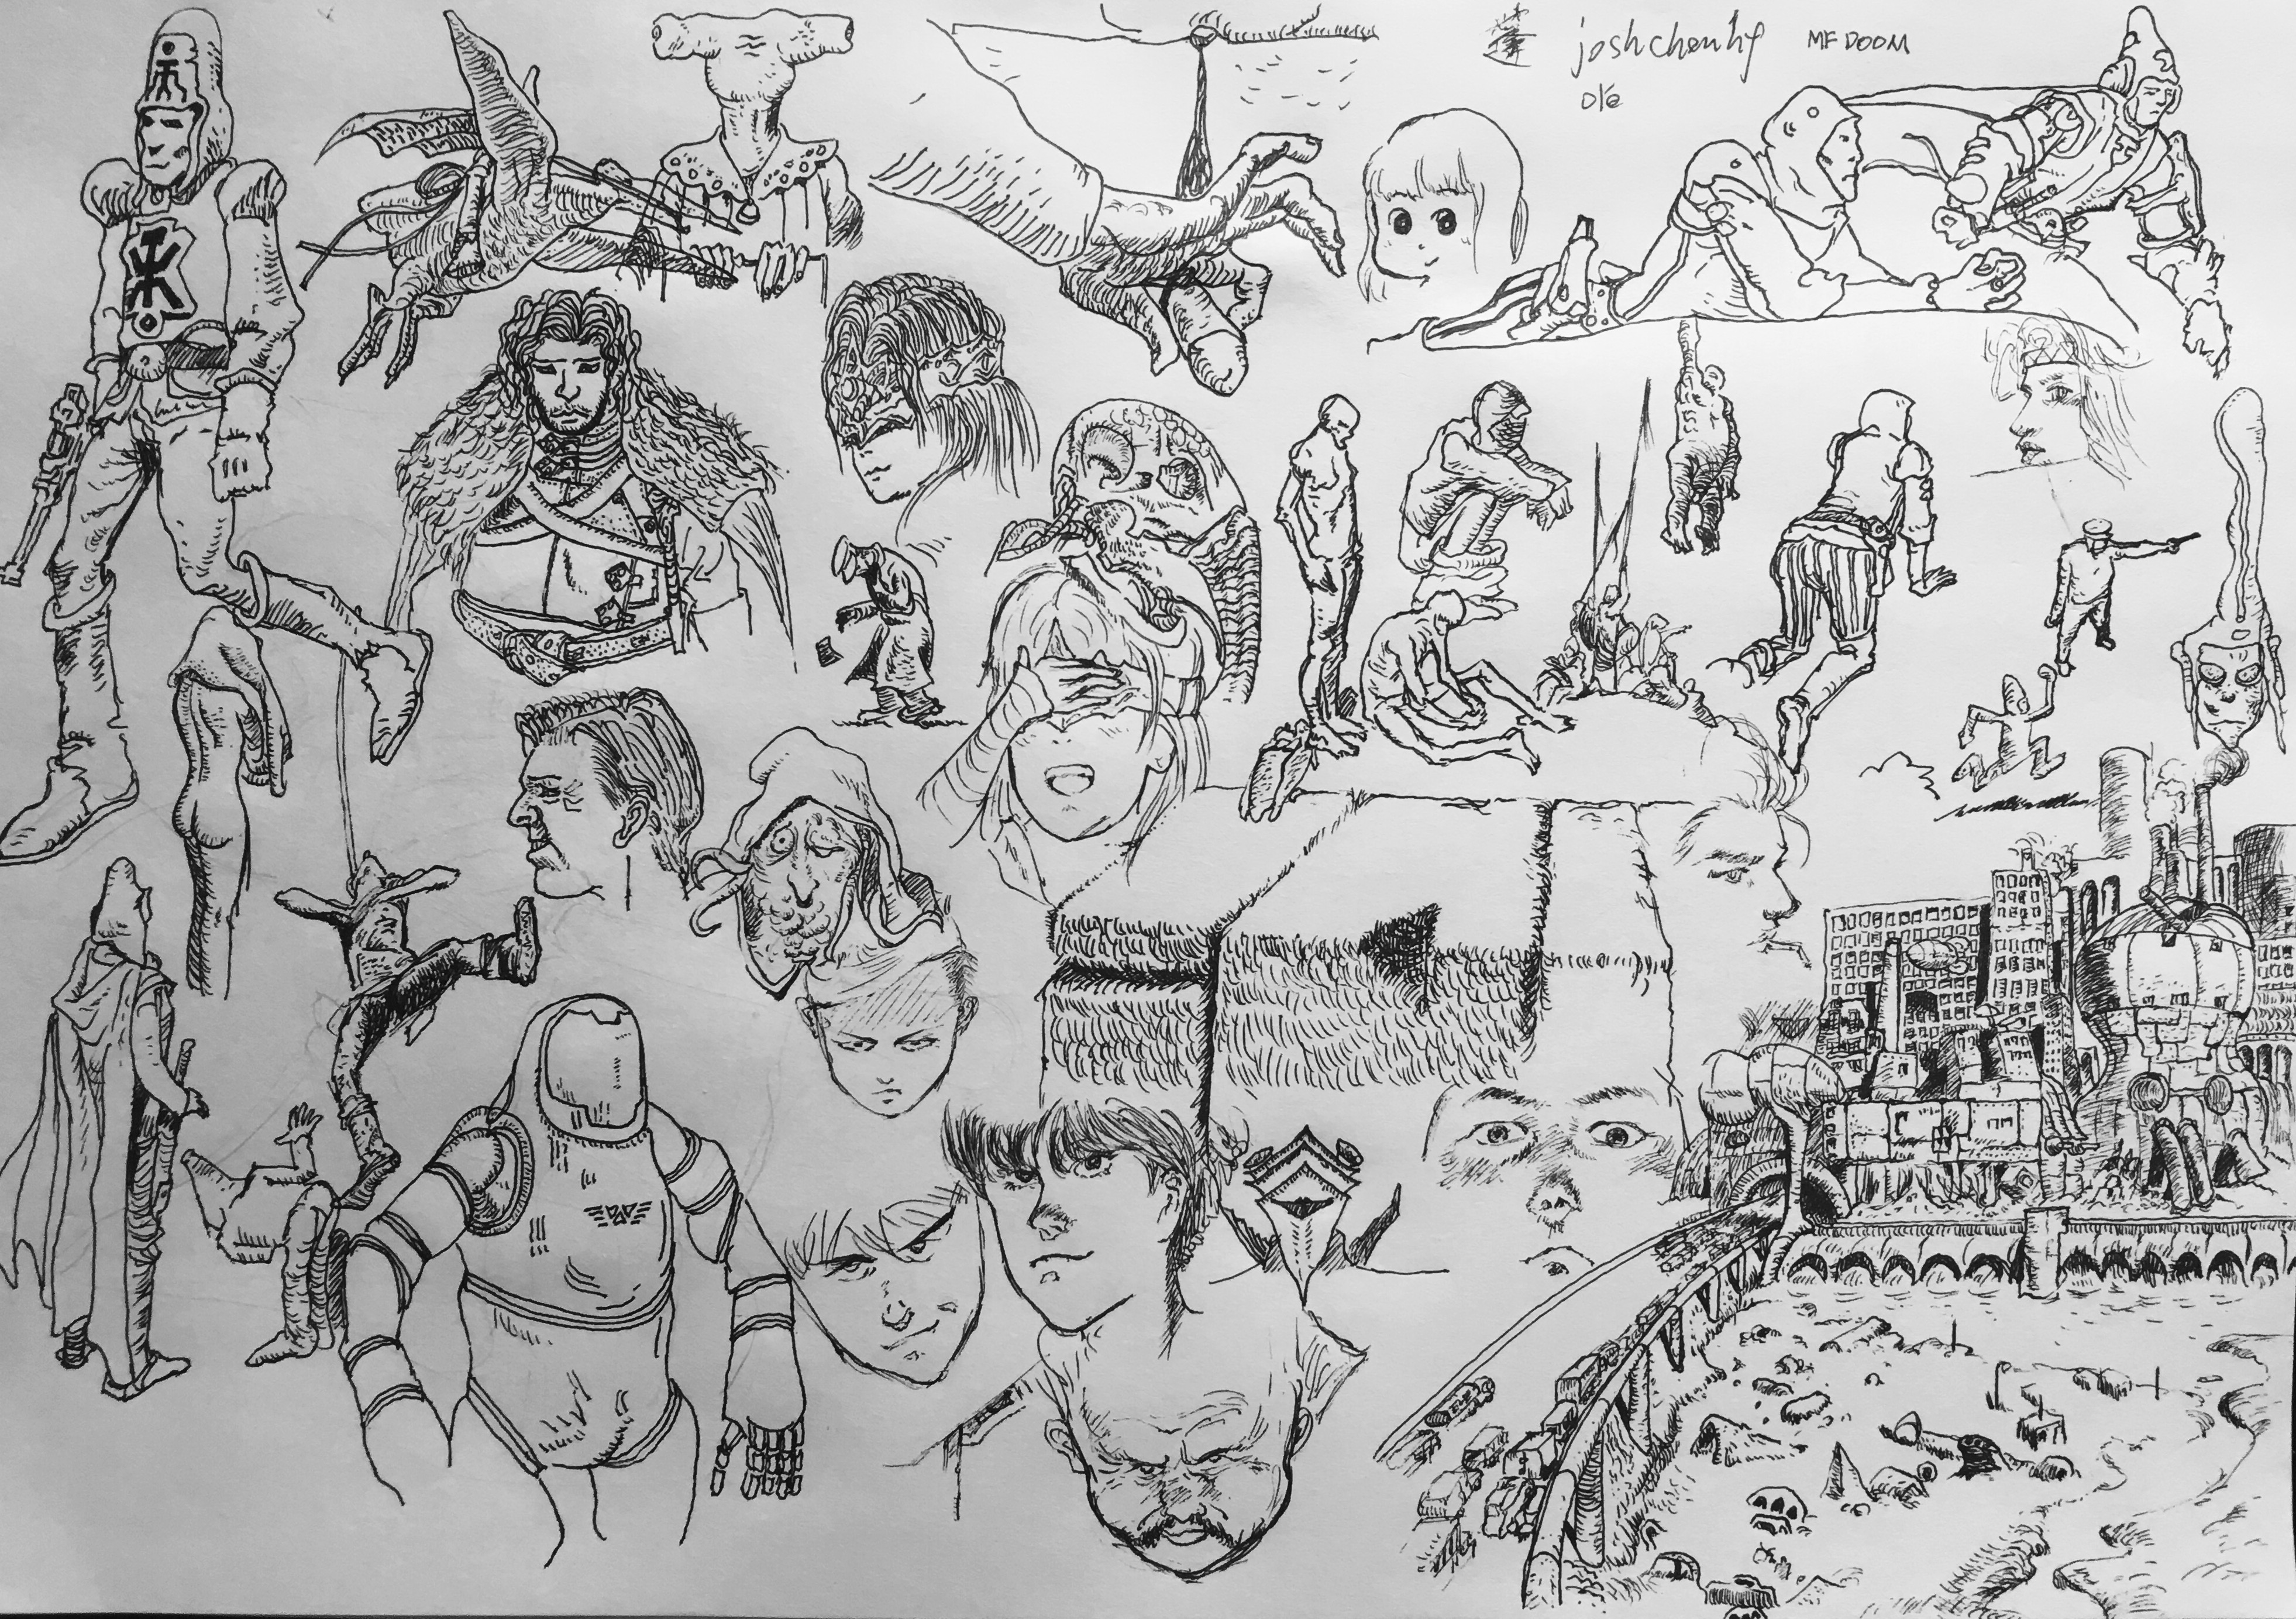 joshchenhf MF DOOM
olé